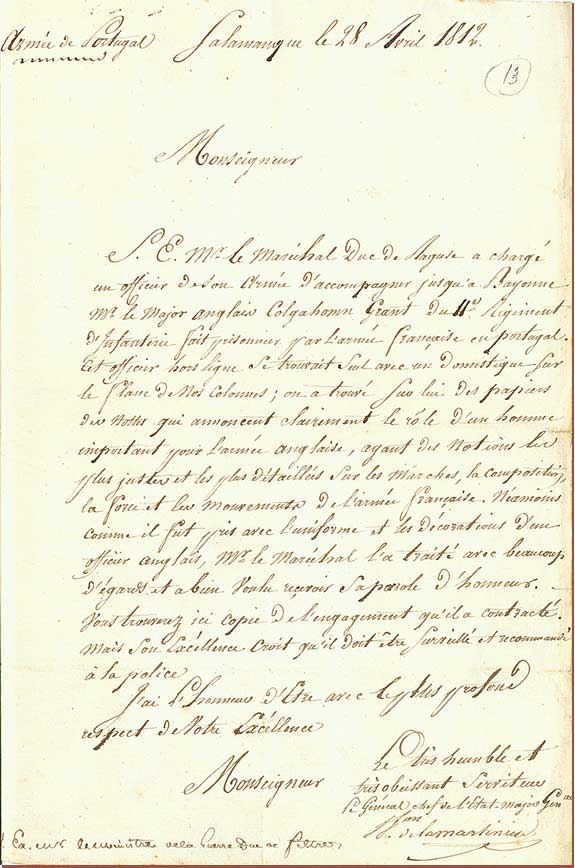 Armée de Portugal
Salamanque le 28 Avril 1812.
13
Monseigneur
S. E. Mr. le Maréchal Duc de Raguse a chargé
un officier de son Armée d'accompagner jusqu'a Bayonne
Mr. le Major anglais Colgahomn Grant du 11e Régiment
d'Infanterie fait prisonnier par l'armée française en portugal.
Cet officier hors ligne se trouvait seul avec un domestique sur
le flanc de nos colonnes; on a trouvé sur lui des papiers
des notes qui annoncent clairement le rôle d'un homme
important pour l'armée anglaise, ayant des notions les
plus justes et les plus détaillés sur les marches, la composition,
la force et les mouvements de l'armée française. Néamoins
comme il fut pris avec l'uniforme et les décorations d'un
officier anglais, Mr. le Maréchal l'a traité avec beaucoup
d'égards et a bien voulu recevoir sa parole d'honneur.
Vous trouverez ici copie de l'engagement qu'il a contracté.
Mais son Excéllence croit qu'il doit être surveillé et recommandé
à la police
J'ai l'honneur d'être avec le plus profond
respect de Votre Excéllence
Monseigneur
Le très humble et
très obéissant Serviteur
Le Général chef de l'État-major Génal
delamartinière
S. Ex. mr le ministre de la Guerre Duc de feltre,